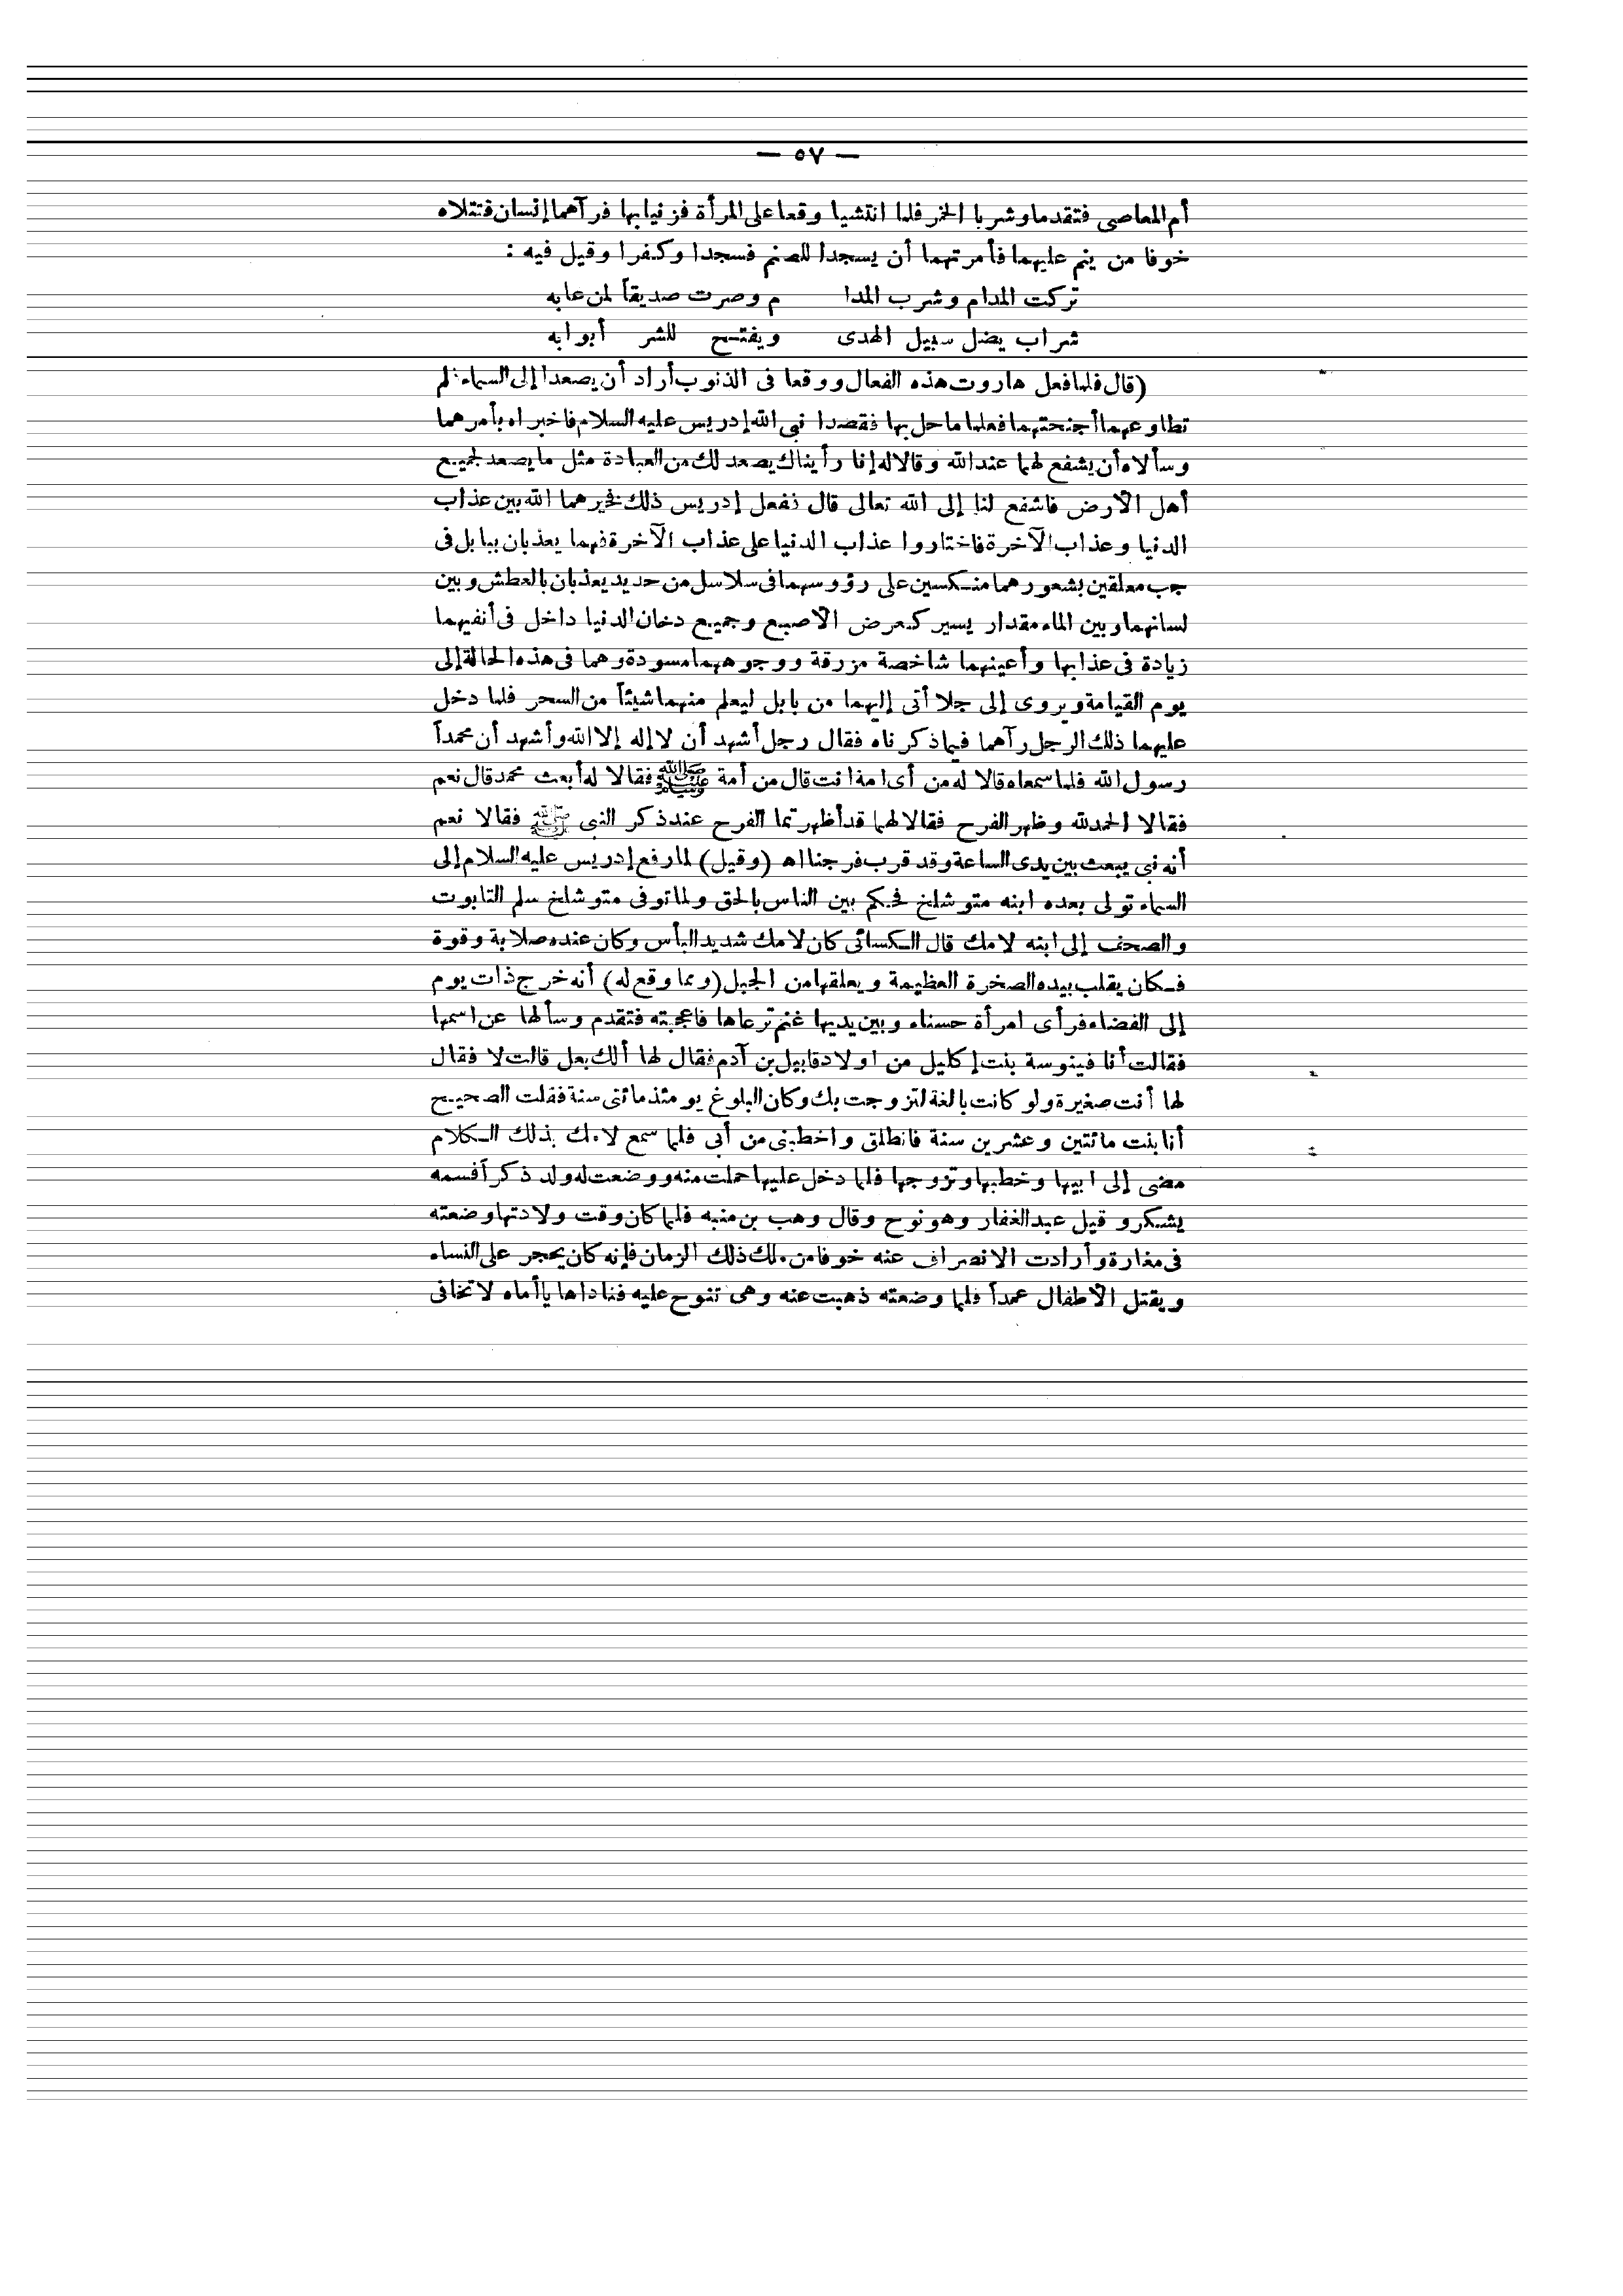 — ٥٧ —
أم المعاصى فتقدما وشربا الخمر فلما انتشيا وقعا على المرأة فزنيا بها فرآهما إنسان فقتلاه
خوفا من ينم عليهما فأمرتهما أن يسجدا للصنم فسجدا وكفرا وقيل فيه :
تركت المدام وشرب المدا م وصرت صديقاً لمن عابه
شراب يضل سبيل الهدى ويفتح للشر أبوابه
(قال فلما فعل هاروت هذه الفعال ووقعا فى الذنوب أراد أن يصعدا إلى السماء فلم
تطاوعهما أجنحتهما فعلما ما حل بها فقصدا نبى الله إدريس عليه السلام فاخبراه بأمرهما
وسألاه أن يشفع لهما عند الله وقالا له إنا رأيناك يصعد لك من العبادة مثل ما يصعد لجميع
أهل الأرض فاشفع لنا إلى الله تعالى قال ففعل إدريس ذلك فخيرهما الله بين عذاب
الدنيا وعذاب الآخرة فاختاروا عذاب الدنيا على عذاب الآخرة فهما يعذبان ببابل فى
جب معلقين بشعورهما منكسين على رؤوسهما فى سلاسل من حديد يعذبان بالعطش وبين
لسانهما وبين الماء مقدار يسير كعرض الاصبع وجميع دخان الدنيا داخل فى أنفيهما
زيادة فى عذابها وأعينهما شاخصة مزرقة ووجوههما مسودة وهما فى هذه الحالة إلى
يوم القيامة ويروى إلى جلا أتى إليهما من بابل ليعلم منهما شيئاً من السحر فلما دخل
عليهما ذلك الرجل رآهما فيما ذكرناه فقال رجل أشهد أن لا إله إلا الله وأشهد أن محمداً
رسول الله فلما سمعاه قالا له من أى امة انت قال من أمة ﷺ فقالا له أبعث محمد قال نعم
فقالا الحمد لله وظهر الفرح فقالا لهما قد أظهرتما الفرح عند ذكر النبى ﷺ فقالا نعم
أنه نبى يبعث بين يدى الساعة وقد قرب فرجنا اه (وقيل) لما رفع إدريس عليه السلام إلى
السماء تولى بعده ابنه متوشلخ فحكم بين الناس بالحق ولما توفى متوشلخ سلم التابوت
والصحف إلى ابنه لامك قال الكسائى كان لامك شديد البأس وكان عنده صلابة وقوة
فكان يقلب بيده الصخرة العظيمة ويعلقها من الجبل (ومما وقع له) أنه خرج ذات يوم
إلى الفضاء فرأى امرأة حسناء وبين يديها غنم ترعاها فاعجبته فتقدم وسألها عن اسمها
فقالت أنا فينوسة بنت إكليل من اولاد قابيل بن آدم فقال لها ألك بعل قالت لا فقال
لها أنت صغيرة ولو كانت بالغة لتزوجت بك وكان البلوغ يومئذ مائتى سنة فقلت الصحيح
أنا بنت مائتين وعشرين سنة فانطلق واخطبنى من أبى فلما سمع لامك بذلك الكلام
مضى إلى ابيها وخطبها وتزوجها فلما دخل عليها حملت منه ووضعت له ولد ذكراً فسمه
يشكرو قيل عبد الغفار وهو نوح وقال وهب بن منبه فلما كان وقت ولادتها وضعته
فى مغارة وأرادت الانصراف عنه خوفا من ملك ذلك الزمان فإنه كان يحجر على النساء
ويقتل الاطفال عمداً فلما وضعته ذهبت عنه وهى تنوح عليه فناداها يا أماه لا تخافى